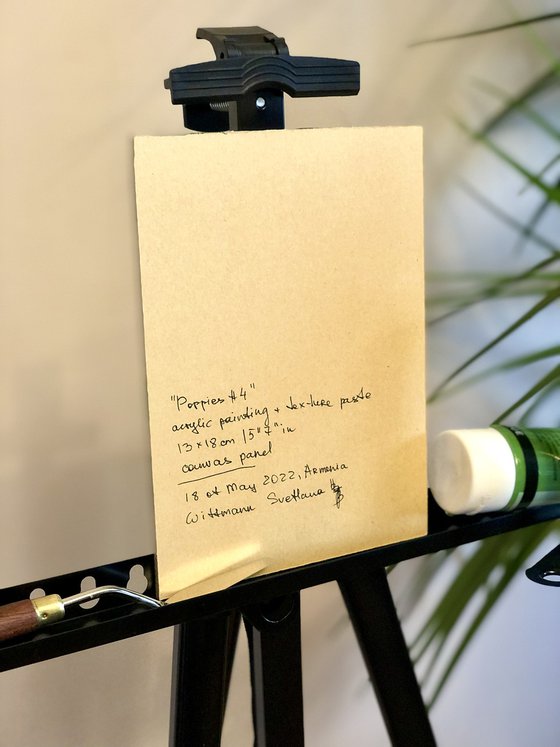 "Poppies #4"
acrylic painting + texture paste
13x18cm |5"*7" in
canvas panel
18 of May 2022, Armenia
Wittmann Svetlana